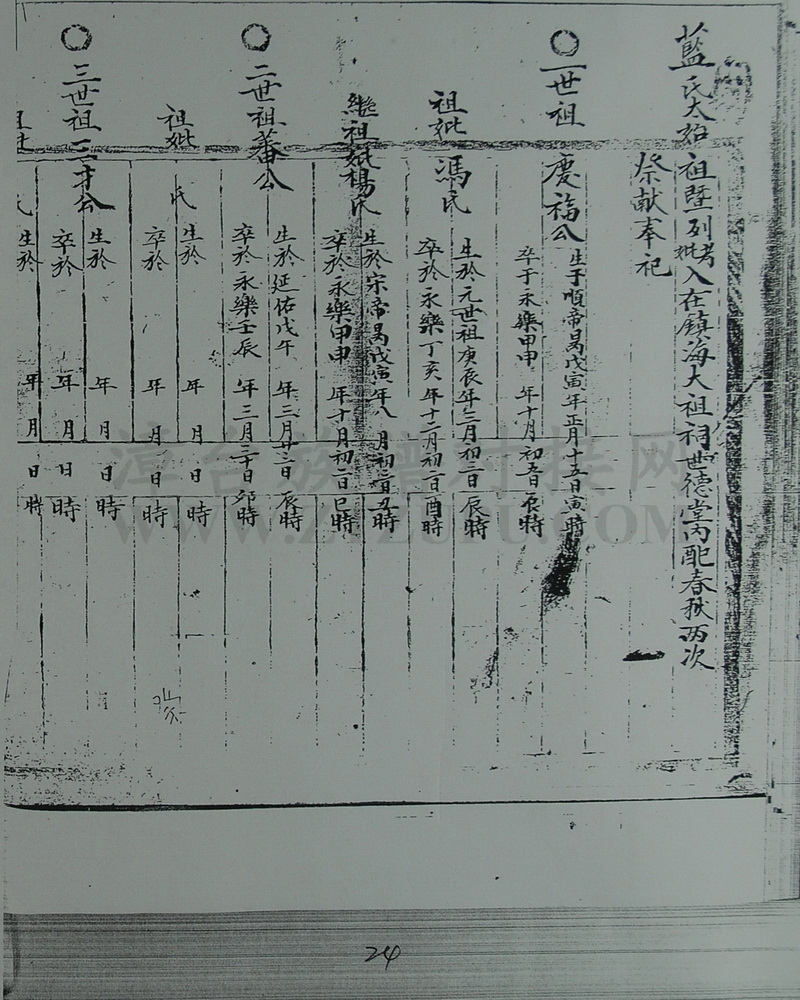 藍氏太始祖暨列考妣入在鎮海大祖祠世德堂內配春秋兩次
祭献奉祀
一世祖 慶福公 生于順帝昺戊寅年正月十五日寅時
卒于永樂甲申 年十月初五日辰時
祖妣 馮氏 生於元世祖庚辰年三月初二日辰時
卒於永樂丁亥年十二月初二日酉時
繼祖妣楊氏 生於宗帝昺戊寅年八月初三日丑時
卒於永樂甲申 年十月初二日巳時
二世祖蕃公 生於延佑戊午 年三月廿三日辰時
卒於永樂壬辰 年三月二十日卯時
祖妣 氏 生於 年 月 日 時
卒於 年 月 日 時
三世祖三才公 生於 年 月 日 時
卒於 年 月 日 時
祖妣 氏 生於 年 月 日 時
漳台族谱对接网
WWW.ZTZUPU.COM
24